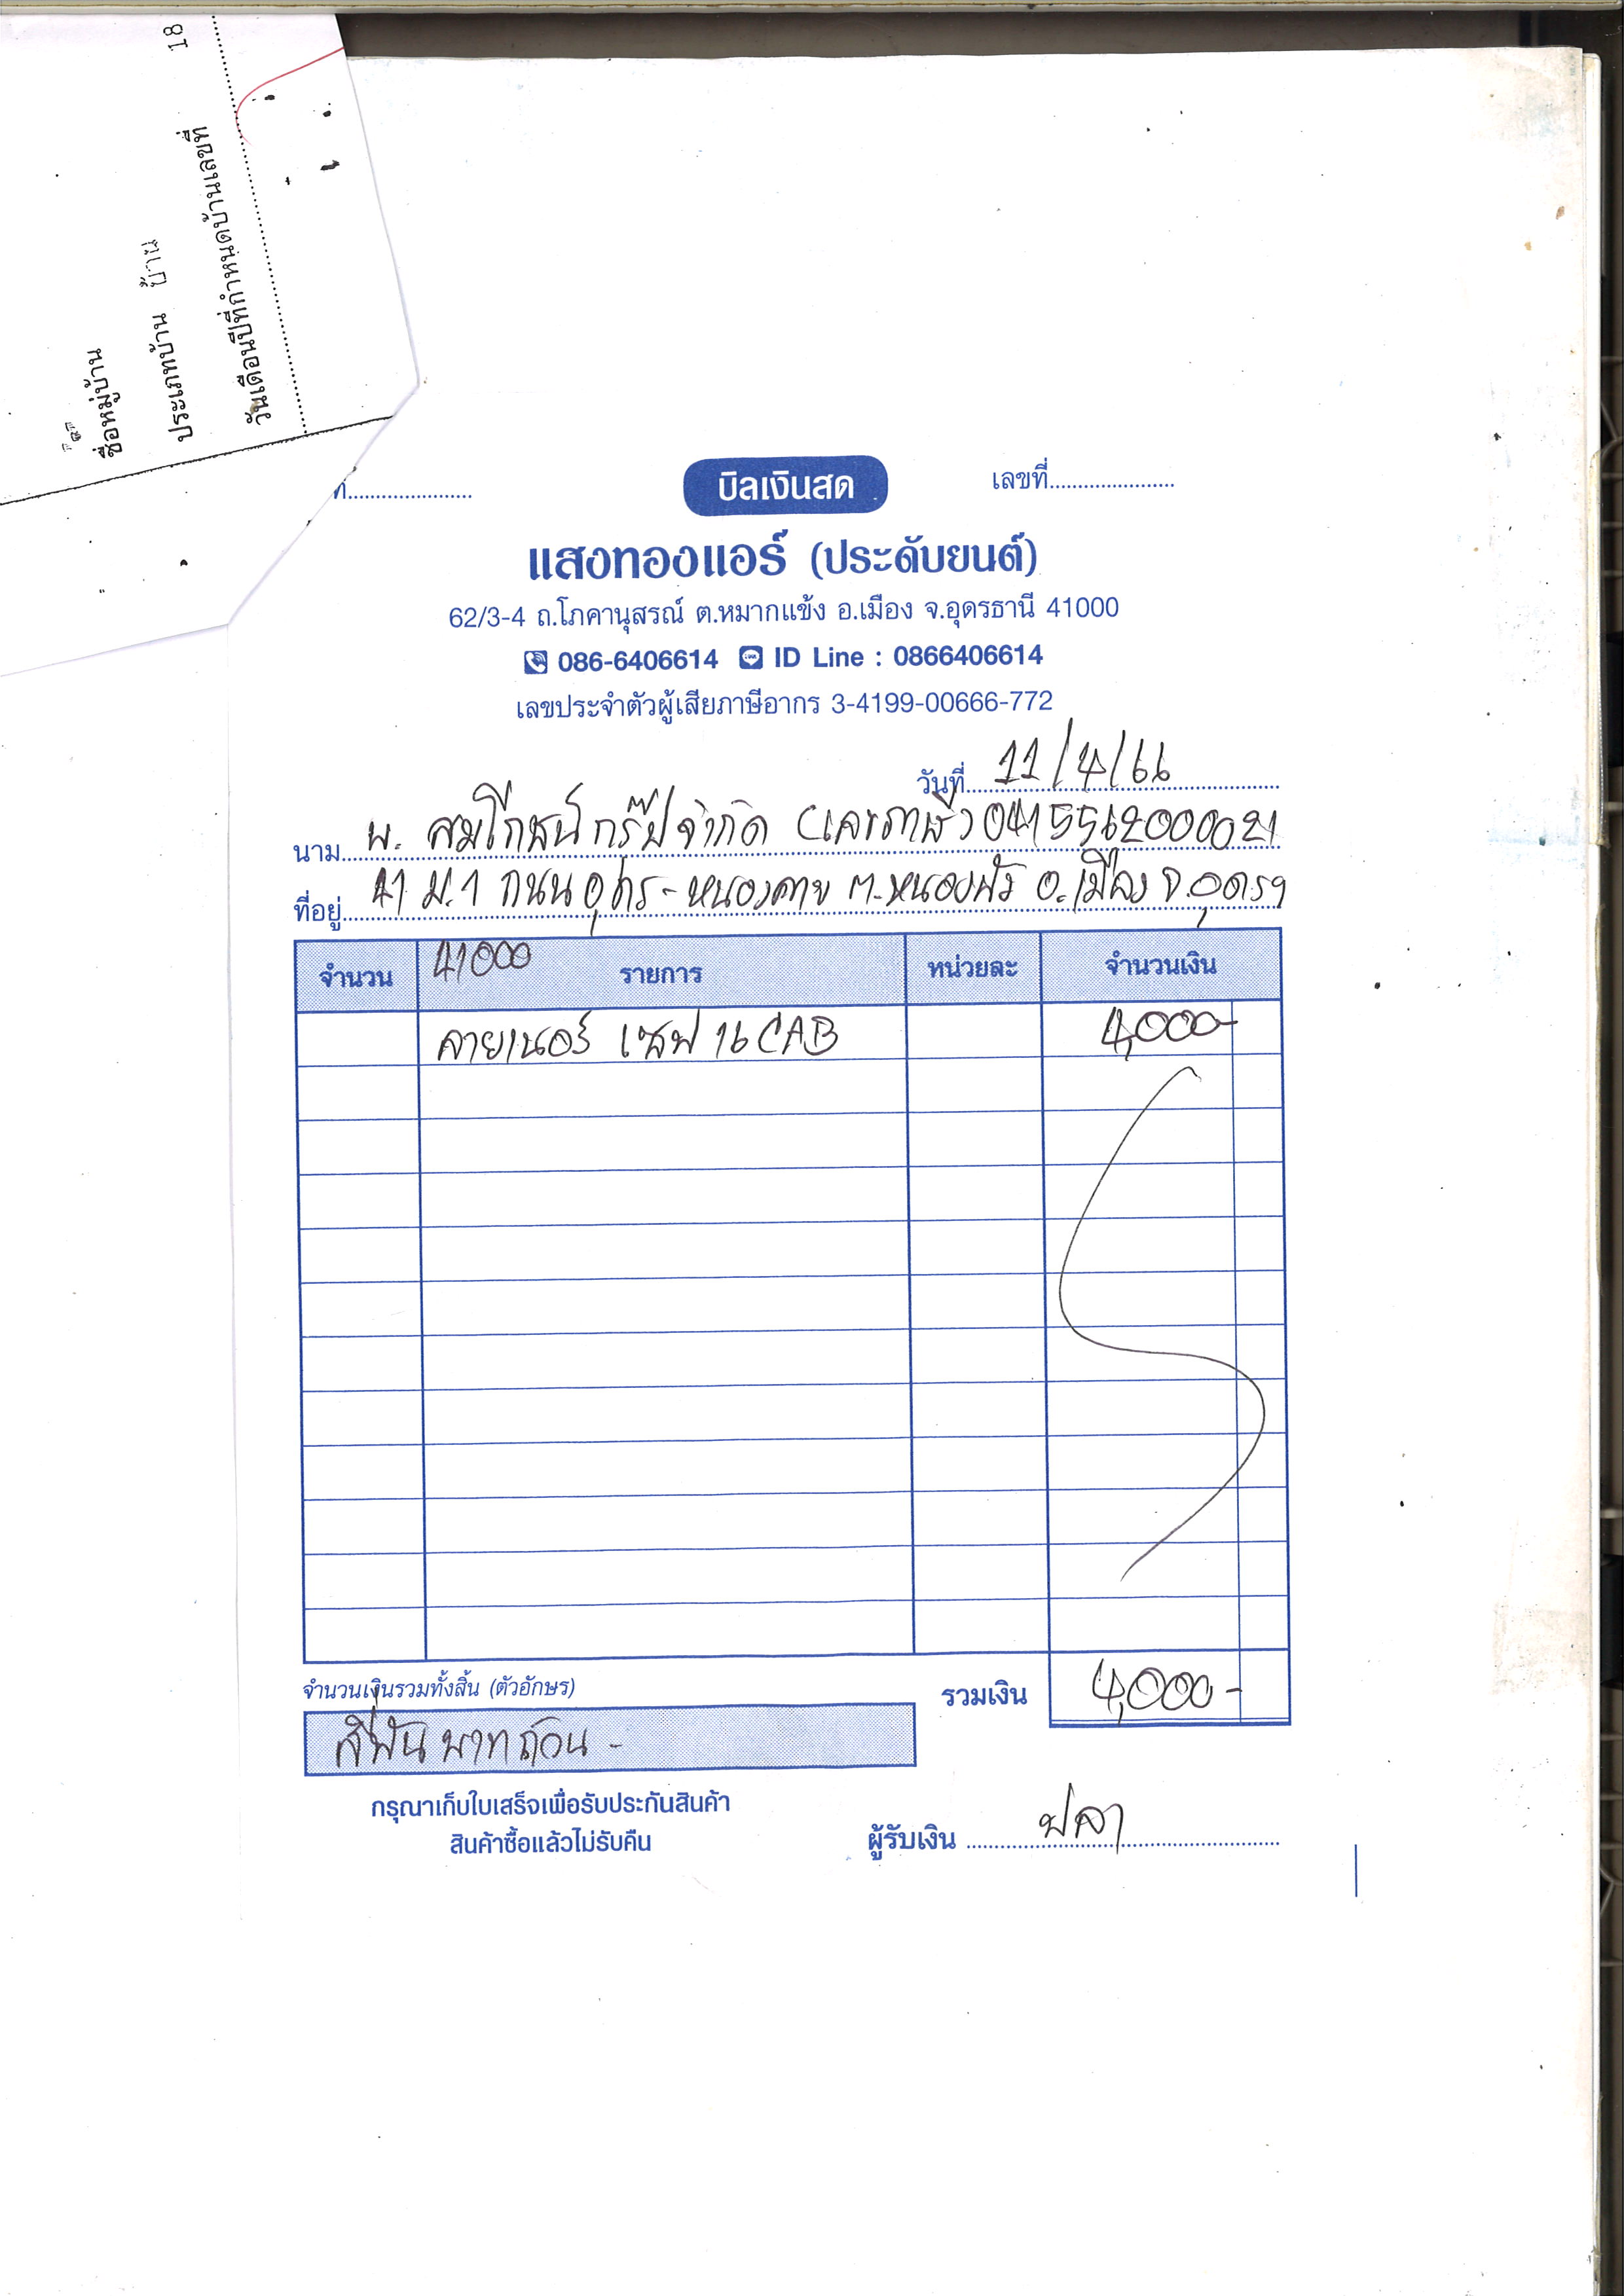 18
ชื่อหมู่บ้าน
ประเภทบ้าน บ้าน
วันเดือนปีที่กำหนดบ้านเลขที่
ที่
บิลเงินสด
เลขที่
แสงทองแอร์ (ประดับยนต์)
62/3-4 ถ.โภคานุสรณ์ ต.หมากแข้ง อ.เมือง จ.อุดรธานี 41000
086-6406614 ID Line : 0866406614
เลขประจำตัวผู้เสียภาษีอากร 3-4199-00666-772
วันที่ 11/4/66
นาม บ. สมโภชน์กรุ๊ปจำกัด (เลขภาษี) 0415562000021
ที่อยู่ 41 ม.1 ถนนอุดร-หนองคาย ต.หนองบัว อ.เมือง จ.อุดรฯ
41000
จำนวน รายการ หน่วยละ จำนวนเงิน
ลายเนอร์ เซฟ 16 CAB 4,000-
จำนวนเงินรวมทั้งสิ้น (ตัวอักษร)
รวมเงิน 4,000-
สี่พันบาทถ้วน -
กรุณาเก็บใบเสร็จเพื่อรับประกันสินค้า
สินค้าซื้อแล้วไม่รับคืน
ผู้รับเงิน ปลา